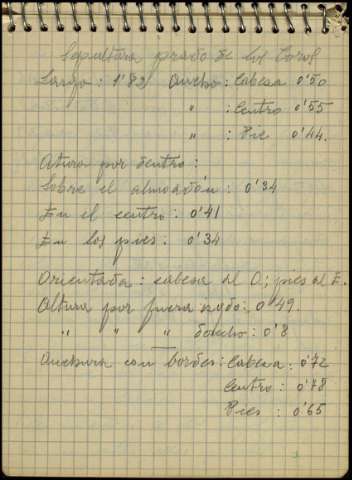 Sepultura prado de Sol Coral
Largo: 1'82 Ancho: Cabesa 0'50
" : Centro 0'55
" : Pie 0'44.
Altura por dentro:
Sobre el almoadón: 0'34
En el centro: 0'41
En los pies: 0'34
Orientada: cabesa al O; pies al E.
Altura por fuera izqdo: 0'49.
" " " derecho: 0'8
Anchura con bordes: Cabesa: 0'72
Centro: 0'78
Pies: 0'65